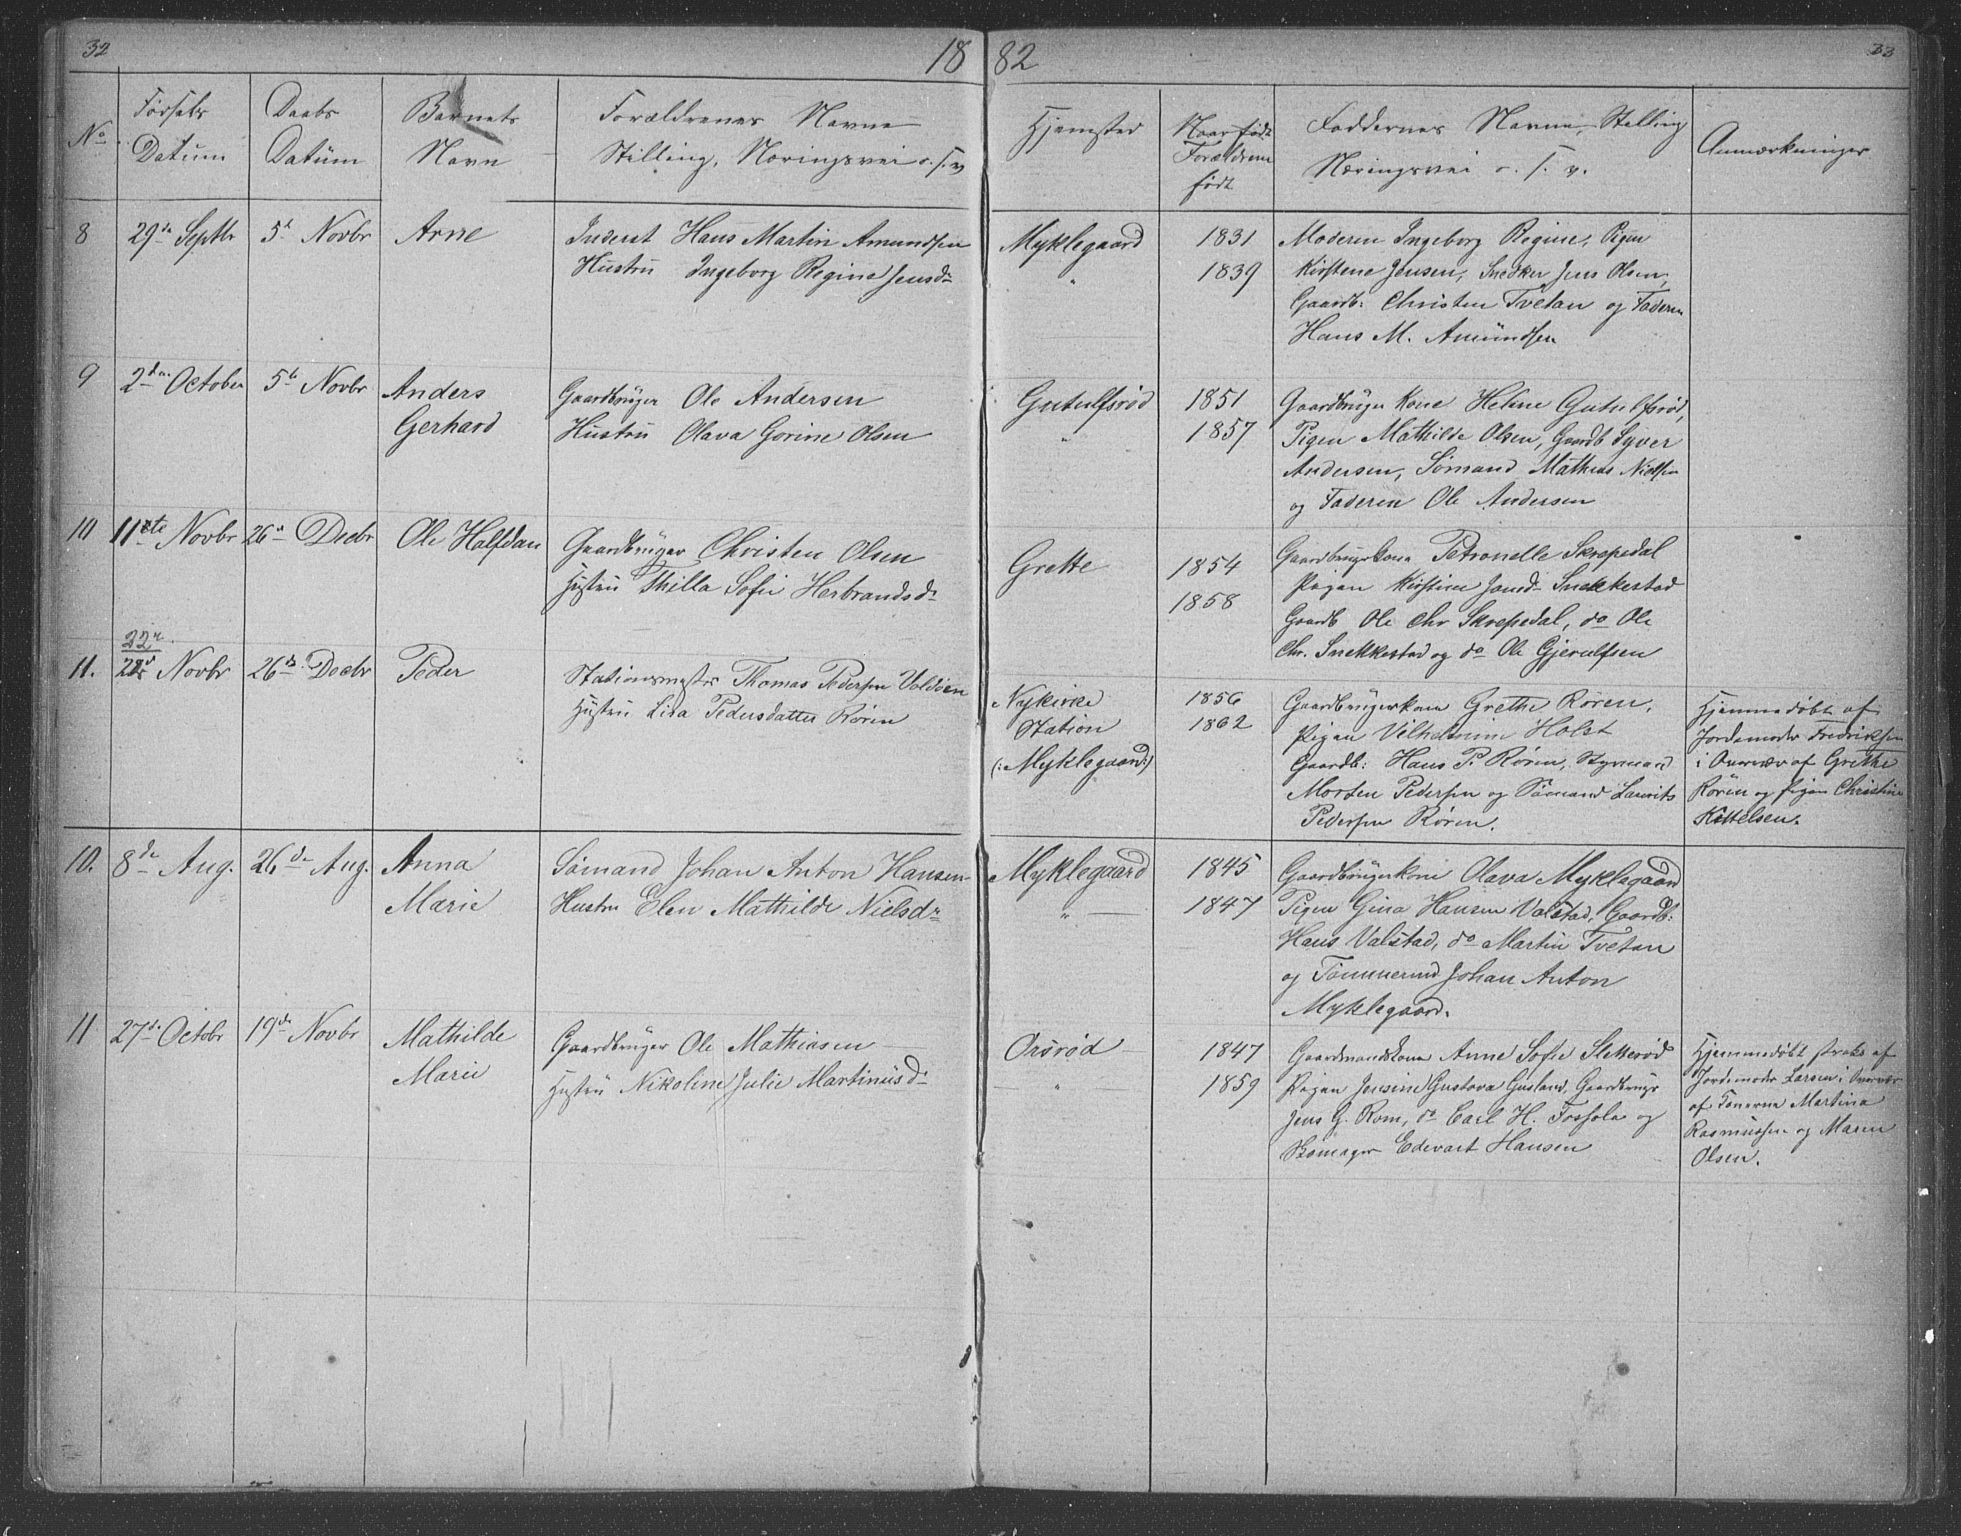 32
18 82
33
No
Fødsels Datum
Daabs Datum
Barnets Navn
Forældrenes Navne
Stilling, Næringsvei o. s. v
Hjemsted
Naar født
Forældrene
født
Faddernes Navne, Stilling
Næringsvei o. s. v.
Anmærkninger
8 29de Septbr 5te Novbr Arne
Inderst Hans Martin Amundsen
Hustru Ingeborg Regine Jensdr
Myklegaard 1831
" 1839
Moderen Ingeborg Regine, Pigen
Kirstene Jensen, Snedker Jens Olsen,
Gaardb: Christen Tvetan og Faderen
Hans M. Amundsen
9 2den October 5te Novbr Anders
Gerhard
Gaardbruger Ole Andersen
Hustru Olava Gorine Olsen
Gutulfsrød 1851
" 1857
Gaardbruger Kone Heline Gutulfsrød,
Pigen Mathilde Olsen, Gaardb Syver
Andersen, Sømand Mathias Nielsen
og Faderen Ole Andersen
10 11te Novbr 26de Decbr Ole Halfdan
Gaardbruger Christen Olsen
Hustru Thilla Sofie Herbrandsdr
Grette 1854
1858
Gaardbrugerkone Petronelle Skrepedal
Pigen Kirstine Jonsd. Snekkestad
Gaardb Ole Chr Skrepedal, do Ole
Chr. Snekkestad og do Ole Gjerulfsen
22de
11. Novbr 26de Decbr Peder
Stationsmester Thomas Pedersen Valdøen
Hustru Lisa Pedersdatter Røren
Nykirke
Station
(: Myklegaard:)
1856
1862
Gaardbrugerkone Grethe Røren,
Pigen Vilhelmine Holst
Gaardb: Hans P. Røren, Styrmand
Morten Pedersen og Sømand Laurits
Pedersen Røren.
Hjemmedøbt af
Jordemoder Fredriksen
i Overvær af Grethe
Røren og pigen Christine
Kittelsen.
10. 8de Aug. 26de Aug. Anna
Marie
Sømand Johan Anton Hansen
Hustru Elen Mathilde Nielsdr
Myklegaard 1845
" 1847
Gaardbrugerkone Olava Myklegaard
Pigen Gina Hansen Valstad, Gaardb:
Hans Valstad, do Martin Tvetan
og Tømmermd Johan Anton
Myklegaard.
11 27de Octobr 19de Novbr Mathilde
Marie
Gaardbruger Ole Mathiasen
Hustru Nikoline Julie Martinusdr
Orsrød 1847
" 1859
Gaardmandskone Anne Sofie Sletterød
Pigen Jensine Gustava Gusland, Gaardbruger
Jens G. Rom, do Carl H. Fossola og
Skomager Edevart Hansen
Hjemmedøbt straks af
Jordemoder Larsen i Overvær
af Konerne Martina
Rasmussen og Maren
Olsen.